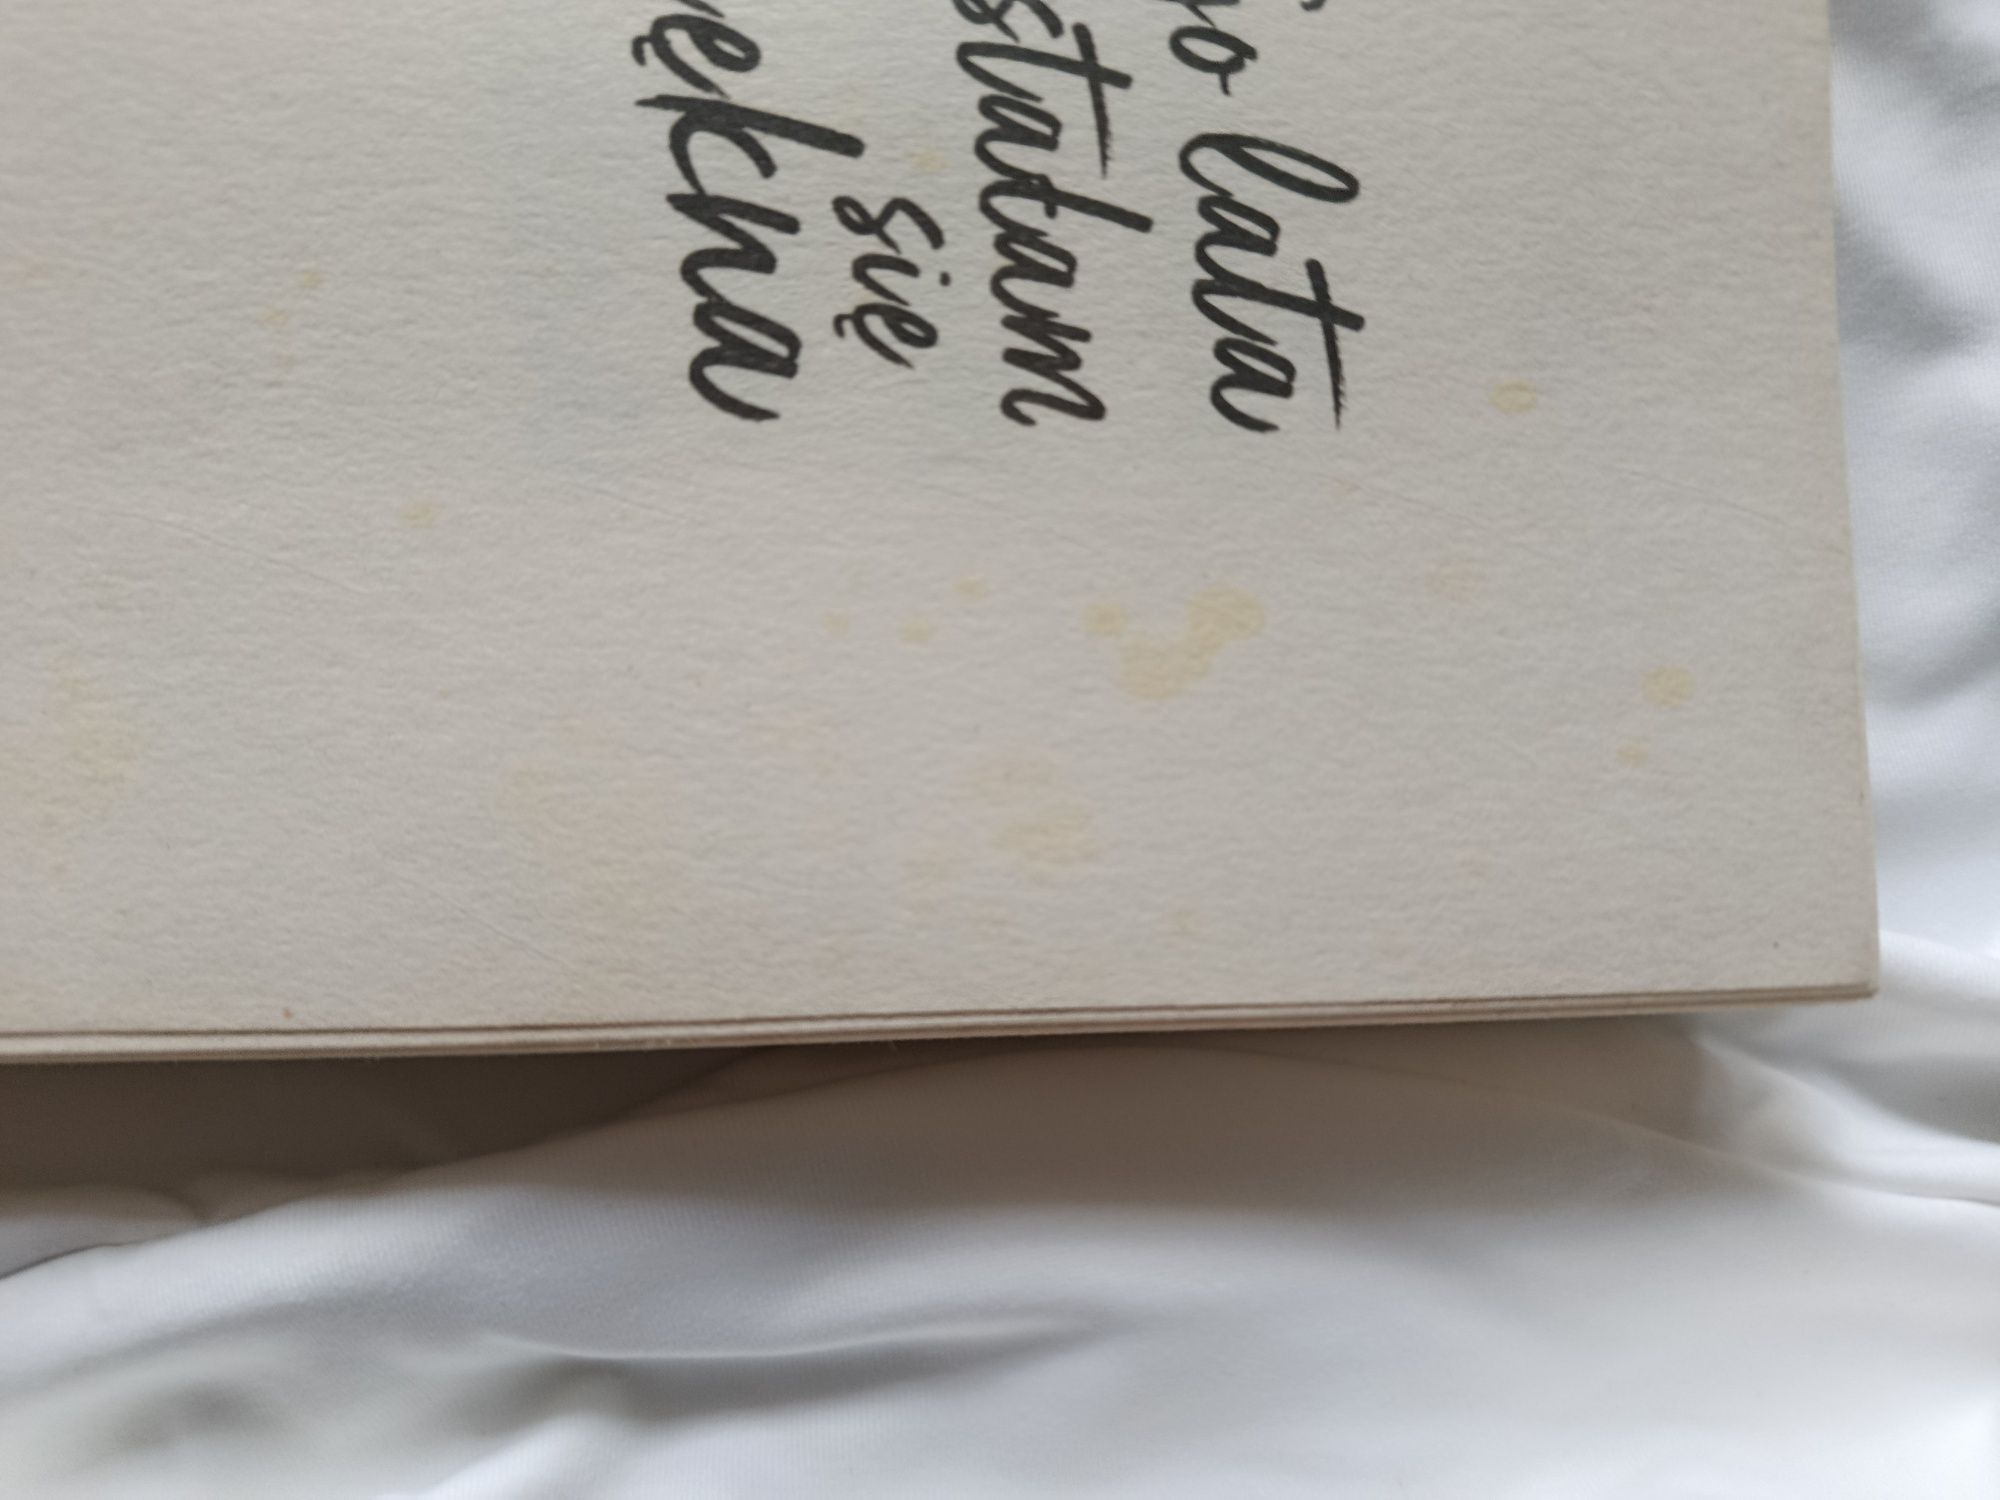 go lata
stałam
się
ękna